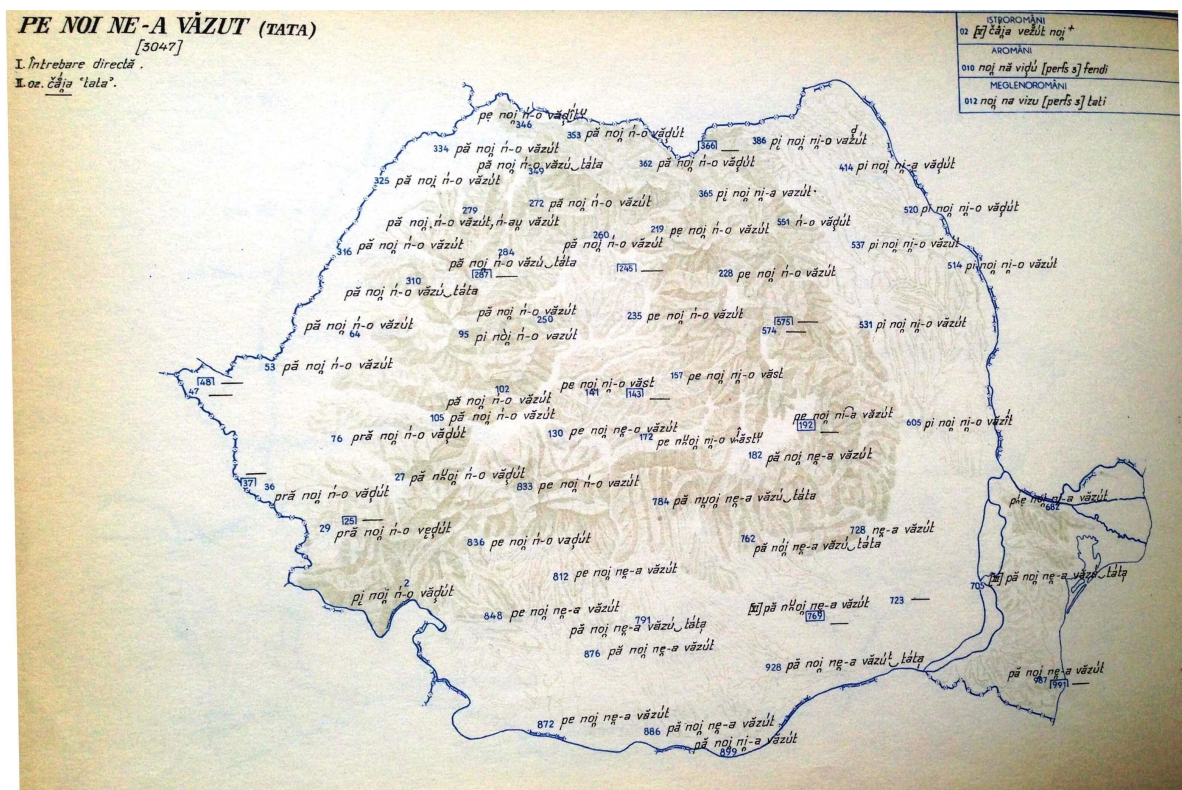 PE NOI NE-A VĂZUT (TATA)
[3047]
I. Întrebare directă.
II. 02. čåi̯a "tata".
ISTROROMÂNI
02 [II] čåi̯a vezút noi̯ +
AROMÂNI
010 noi̯ nă vidú [perfs 3] fendi
MEGLENOROMÂNI
012 noi̯ na vizu [perfs 3] tati
346
353 pă noi̯ ń-o văḑút
334 pă noi̯ ń-o văzút
366
386
pă noi̯ ń-o văzú‿táta
349
362 pă noi̯ ń-o văḑút
414 pi noi̯ ni-a văḑút
325 pă noi̯ ń-o văzút
365 pi̯ noi̯ ni-a vazút
272 pă noi̯ ń-o văzút
279
520 pi noi̯ ni-o văḑút
pă noi̯ ń-o văzút, ń-au̯ văzút
219 pe noi̯ ń-o văzút
551 ń-o văḑút
260
316 pă noi̯ ń-o văzút
pă noi̯ ń-o văzút
537 pi noi̯ ni-o văzút
284
pă noi̯ ń-o văzú‿táta
287
245
228 pe noi̯ ń-o văzút
514 pi noi̯ ni-o văzút
310
pă noi̯ ń-o văzú‿táta
pă noi̯ ń-o văzút
250
235 pe noi̯ ń-o văzút
575
574
531 pi noi̯ ni-o văzút
pă noi̯ ń-o văzút
64
95 pi noi̯ ń-o vazút
53 pă noi̯ ń-o văzút
48
47
157 pe noi̯ ni-o văst
pe noi̯ ni-o văst
141
143
102
pă noi̯ ń-o văzút
105 pă noi̯ ń-o văzút
pe noi̯ ni-a văzút
192
605 pi noi̯ ni-o văzît
76 pră noi̯ ń-o văḑút
130 pe noi̯ ne-o văzút
172
182 pă noi̯ ne̯-a văzút
27
37
36 pră noi̯ ń-o văḑút
833 pe noi̯ ń-o vazút
784 pă nuoi̯ ne̯-a văzú‿táta
682
25
29 pră noi̯ ń-o veḑút
728 ne-a văzút
836 pe noi̯ ń-o vaḑút
762 pă nói̯ ne̯-a văzú‿táta
812 pe noi̯ ne̯-a văzút
705 pă noi̯ ne̯-a văzú‿táta
2
pi̯ noi̯ ń-o văḑút
848 pe noi̯ ne̯-a văzút
723
769
791
pă noi̯ ne̯-a văzú‿táta
876 pă noi̯ ne̯-a văzút
928 pă noi̯ ne̯-a văzút‿táta
pă noi̯ ne̯-a văzút
987
991
872 pe noi̯ ne̯-a văzút
886 pă noi̯ ne̯-a văzút
pă noi̯ ni-a văzút
899